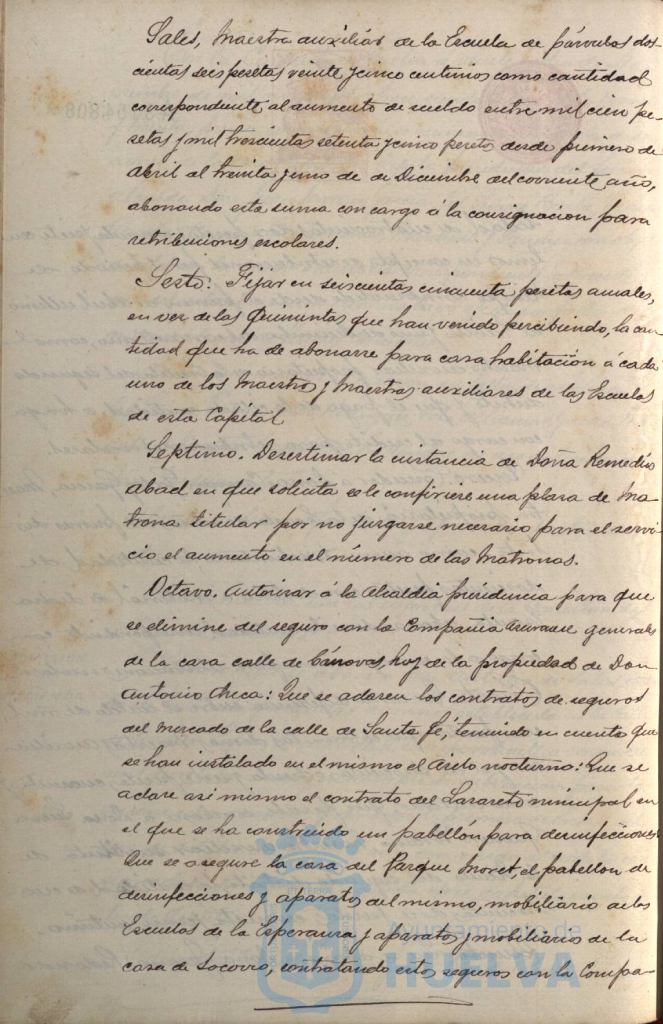 Sales, Maestra auxiliar de la Escuela de párvulos dos-
cientas seis pesetas veinte y cinco centimos como cantidad
correspondiente al aumento de sueldo entre mil cien pe-
setas y mil trescientas setenta y cinco pesetas desde primero de
Abril al treinta y uno de de Diciembre del corriente año,
abonando esta suma con cargo á la consignacion para
retribuciones escolares.
Sexto: Fijar en seiscientas cincuenta pesetas anuales,
en vez de las quinientas que han venido percibiendo, la can-
tidad que ha de abonarse para casa habitación á cada
uno de los Maestros y Maestras auxiliares de las Escuelas
de esta Capital
Septimo. Desestimar la instancia de Doña Remedios
Abad en que solicita se le confiriese una plaza de Ma-
trona titular por no juzgarse necesario para el servi-
cio el aumento en el número de las Matronas.
Octavo. Autorizar á la Alcaldia presidencia para que
se elimine del seguro con la Compañia generales
de la casa calle de Cánovas, hoy de la propiedad de Don
Antonio Checa: Que se aclaren los contratos de seguros
del Mercado de la calle de Santa Fé, teniendo en cuenta que
se han instalado en el mismo el Asilo nocturno: Que se
aclare asi mismo el contrato del Lazareto municipal en
el que se ha construido un pabellón para desinfecciones:
Que se asegure la casa del Parque Moret, el pabellon de
desinfecciones y aparatos del mismo, mobiliario de las
Escuelas de la Esperanza y aparatos y mobiliario de la
casa de Socorro, contratando estos seguros con la Compa-
Ayuntamiento de
HUELVA